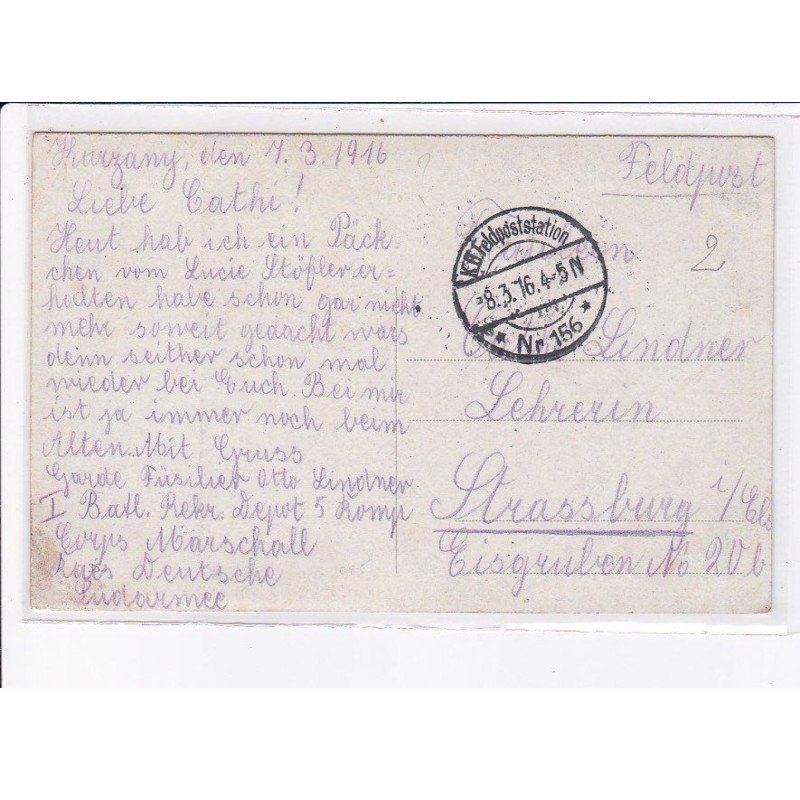 Korzany, den 7.3.1916
Liebe Cathi!
Heut hab ich ein Päck-
chen vom Lucie Stöfler er=
halten habe schon gar nicht
mehr soweit gedacht wars
denn seither schon mal
wieder bei Euch. Bei mir
ist ja immer noch beim
Alten. Mit Gruss
Garde Füsilier Otto Lindner
I Batl. Rekr. Depot 5 Komp
Corps Marschall
Deutsche
Südarmee
Feldpost
K.D. Feldpoststation
-8.3.16.4-5N
* Nr. 156 *
2
Lindner
Lehrerin
Strassburg i/Els
Eisgruben No 20b